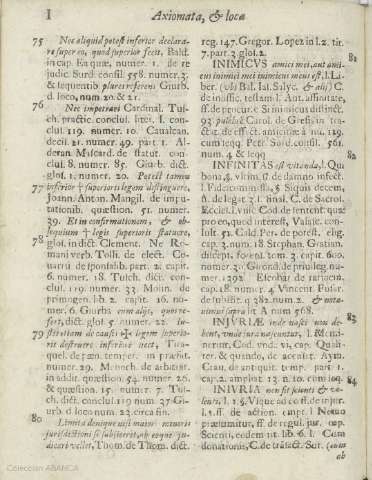 I Axiomata, & loca
75 Nec aliquid potest inferior declara-
re super eo, quod superior fecit, Bald.
in cap. Ea quæ, numer. 1. de re
judic. Surd. consil. 558. numer. 3.
& sequentib. plures refferens Giurb.
d. loco, num 20. & 21.
76 Nec imperari Cardinal. Tus-
ch. practic. conclus. litet. I. con-
clus. 119. numer. 10. Cavalcan.
decis. 21. numer. 49. part. 1. Al-
deran. Mascard. de statut. con-
clus. 8. numer. 85. Giurb. dict.
glos. 1. numer. 20. Potest tamen
77 inferior † superioris legem distinguere,
Joann. Anton. Mangil. de impu-
tationib. quæstion. 51. numer.
39. Et in confirmationem, & ob-
sequium † legis superioris statuere,
78 glos. in dict. Clement. Ne Ro-
mani verb. Tolli. de elect. Co-
varru. de sponsalib. part. 2. capit.
6. numer. 18. Tusch. dict. con-
clus. 119. numer. 33. Molin. de
primogen. lib. 2. capit. 16. nu-
mer. 6. Giurb. cum alijs, quos re-
fert, dict. glos. 5. numer. 22. Iu-
sta ratione & causa † legem superio-
79 ris destruere inferior nect, Tira-
quel. de pœn. temper. in præfat.
numer. 29. Menoch. de arbitrar.
in addit. quæstion. 54. numer. 26.
& quæstion. 15. numer. 7. Tus-
ch. dict. conclus. 119 num. 37. Giur-
b. d. loco num. 22. circa fin.
80 Limita denique nisi maior minoris
jurisdictioni se subijcerit, ab eoque ju-
dicari vellet, Thom. de Thom. dict.
reg. 147. Gregor. Lopez in l. 2. tit.
7. part. 3. glos. 2.
81 INIMICUS amici mei, aut ami-
cus inimici mei inimicus meus est, l. Li-
ber. (ubi Bal. Ial. Salyc. & alij) C.
de inoffic. testam. l. Aut assinitate,
ff. de procur. & inimicus distinct.
93. publicè Carol. de Grassis in tra-
ctat. de effect. amicitiæ à nu. 129.
cum seqq. Petr. Surd. consil. 561.
num. 4. & seqq.
82 INFINITAS est vitanda, l. Qui
bona, §. ultim. ff. de damno infect.
l. Fideicommissa, § Siquis decem,
ff. de legat. 3. l. final. C. de Sacros.
Ecclesi. l. unic. Cod. de sentent. quæ
pro eo, quod interest, Valasc. con-
sult. 51. Cald. Per. de potest. elig.
cap. 3. num. 18. Stephan. Gratian.
discept. foren. tom. 3. capit. 600.
numer. 30. Girond. de privileg. nu-
mer. 1292. Escobar de ratiocin.
cap. 18. numer. 4. Vincent. Fusar.
de substit. q. 382. num. 2. & nota-
vimus supra lit. A num. 568.
83 INJURIÆ inde nasci non de-
bent, unde jura nascuntur, l. Memi-
nerint, Cod. und. vi, cap. Quali-
ter & quando, de accusat. Aym.
Crau. de antiquit. temp. part. 1.
cap. 2. amplia. 13. n. 10. cum seqq.
84 INIURIA non fit scienti & vo-
lenti, l. 1. §. Vsque ad eos ff. de injur.
l. 1. ff. de action. empt. l. Nemo
præsumitur, ff. de regul. jur. cap.
Scienti, eodem tit. lib. 6. l. Cum
donationis, C. de transact. Sur. (cum
ab
Colección ABANCA